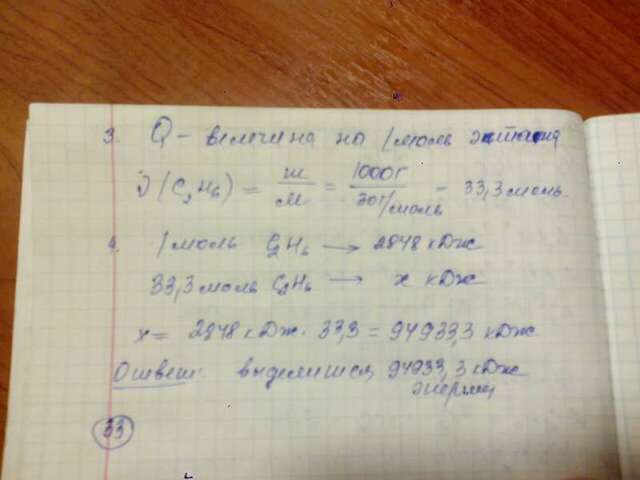 3. Q - величина на 1 моль этана
ν(C₂H₆) = m/M = 1000г/30г/моль = 33,3 моль.
4. 1 моль C₂H₆ → 2848 кДж
33,3 моль C₂H₆ → x кДж
x = 2848 кДж · 33,3 = 94933,3 кДж
Ответ: выделится 94933,3 кДж
энергии
33